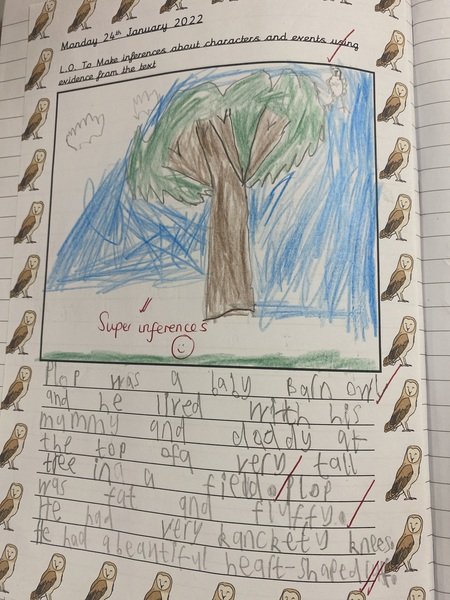 Monday 24th January 2022
L.O. To Make inferences about characters and events using
evidence from the text
Super inferences
Plop was a baby Barn owl
and he lived with his
mummy and daddy at
the top ofa very tall
tree ina a field. Plop
was fat and fluffy.
He had very ranckety knees.
He had a beantiful heart-shaped